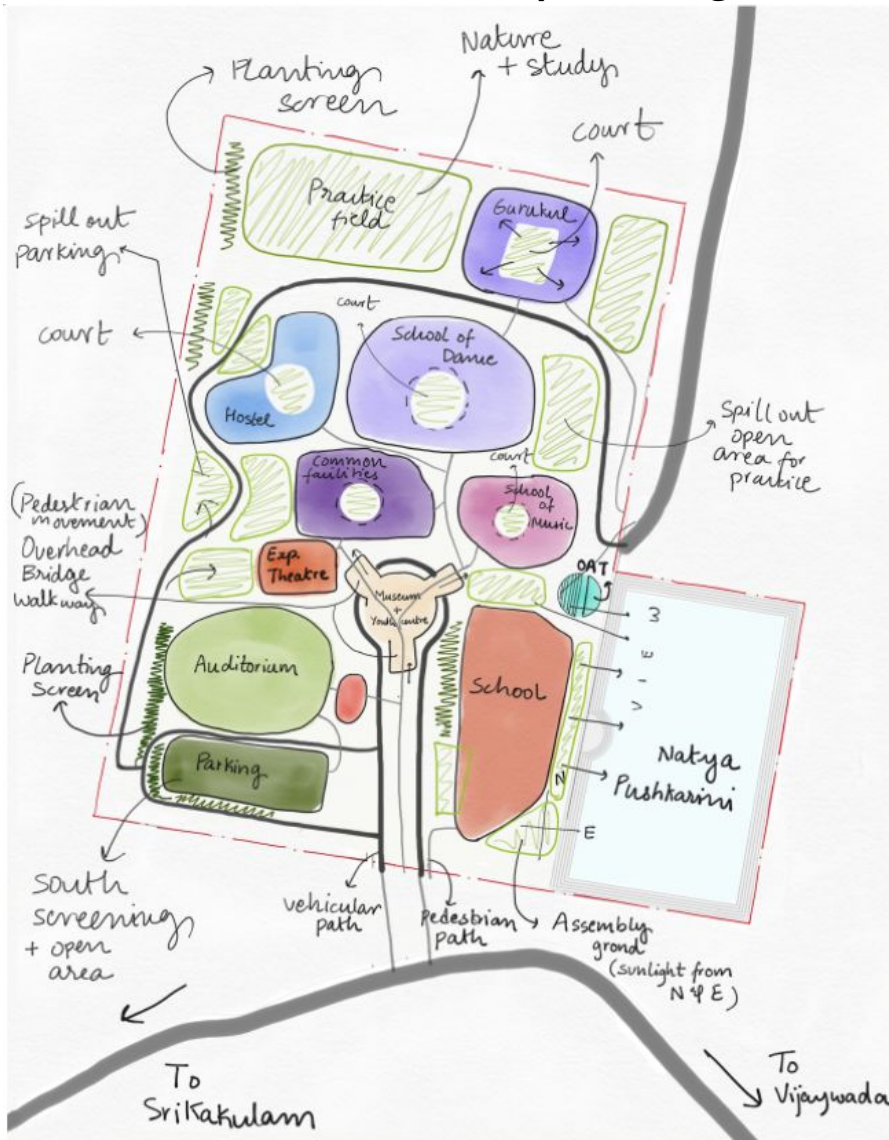 Planting
screen
Nature
+ study
court
Practice
field
Gurukul
Spill out
parking
court
court
School of
Dance
Hostel
Spill out
open
area for
practice
Common
facilities
court
School
of
Music
(Pedestrian
movement)
Overhead
Bridge
walkway
Exp.
Theatre
OAT
Museum
+
Youth centre
V I E W
Planting
Screen
Auditorium
School
Natya
Pushkarini
Parking
N
E
South
screening
+ open
area
vehicular
path
Pedestrian
path
Assembly
grond
(sunlight from
N & E)
To
Srikakulam
To
Vijaywada